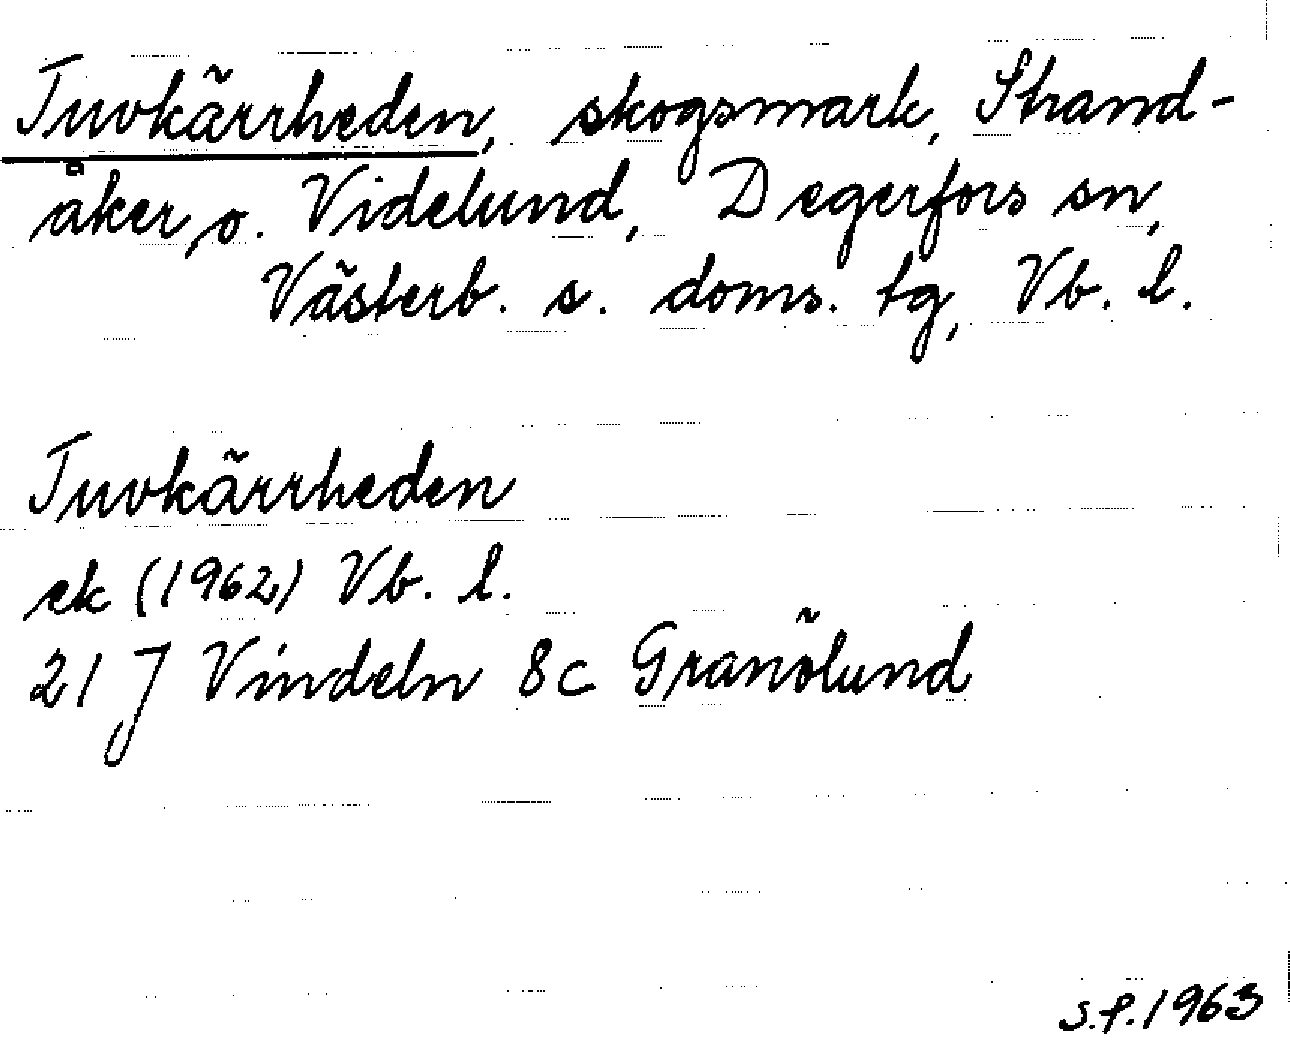 Tuvkärrheden, skogsmark, Strand-
åker o. Videlund, Degerfors sn,
Västerb. s. doms. tg, Vb. l.
Tuvkärrheden
ek (1962) Vb. l.
21 J Vindeln 8c Granölund
S.f. 1963